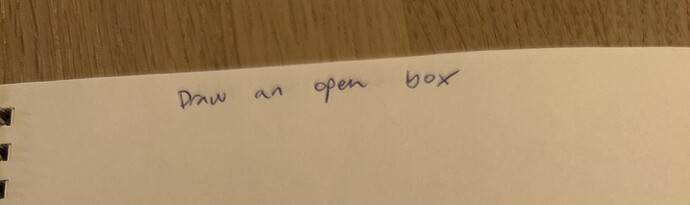 Draw an open box